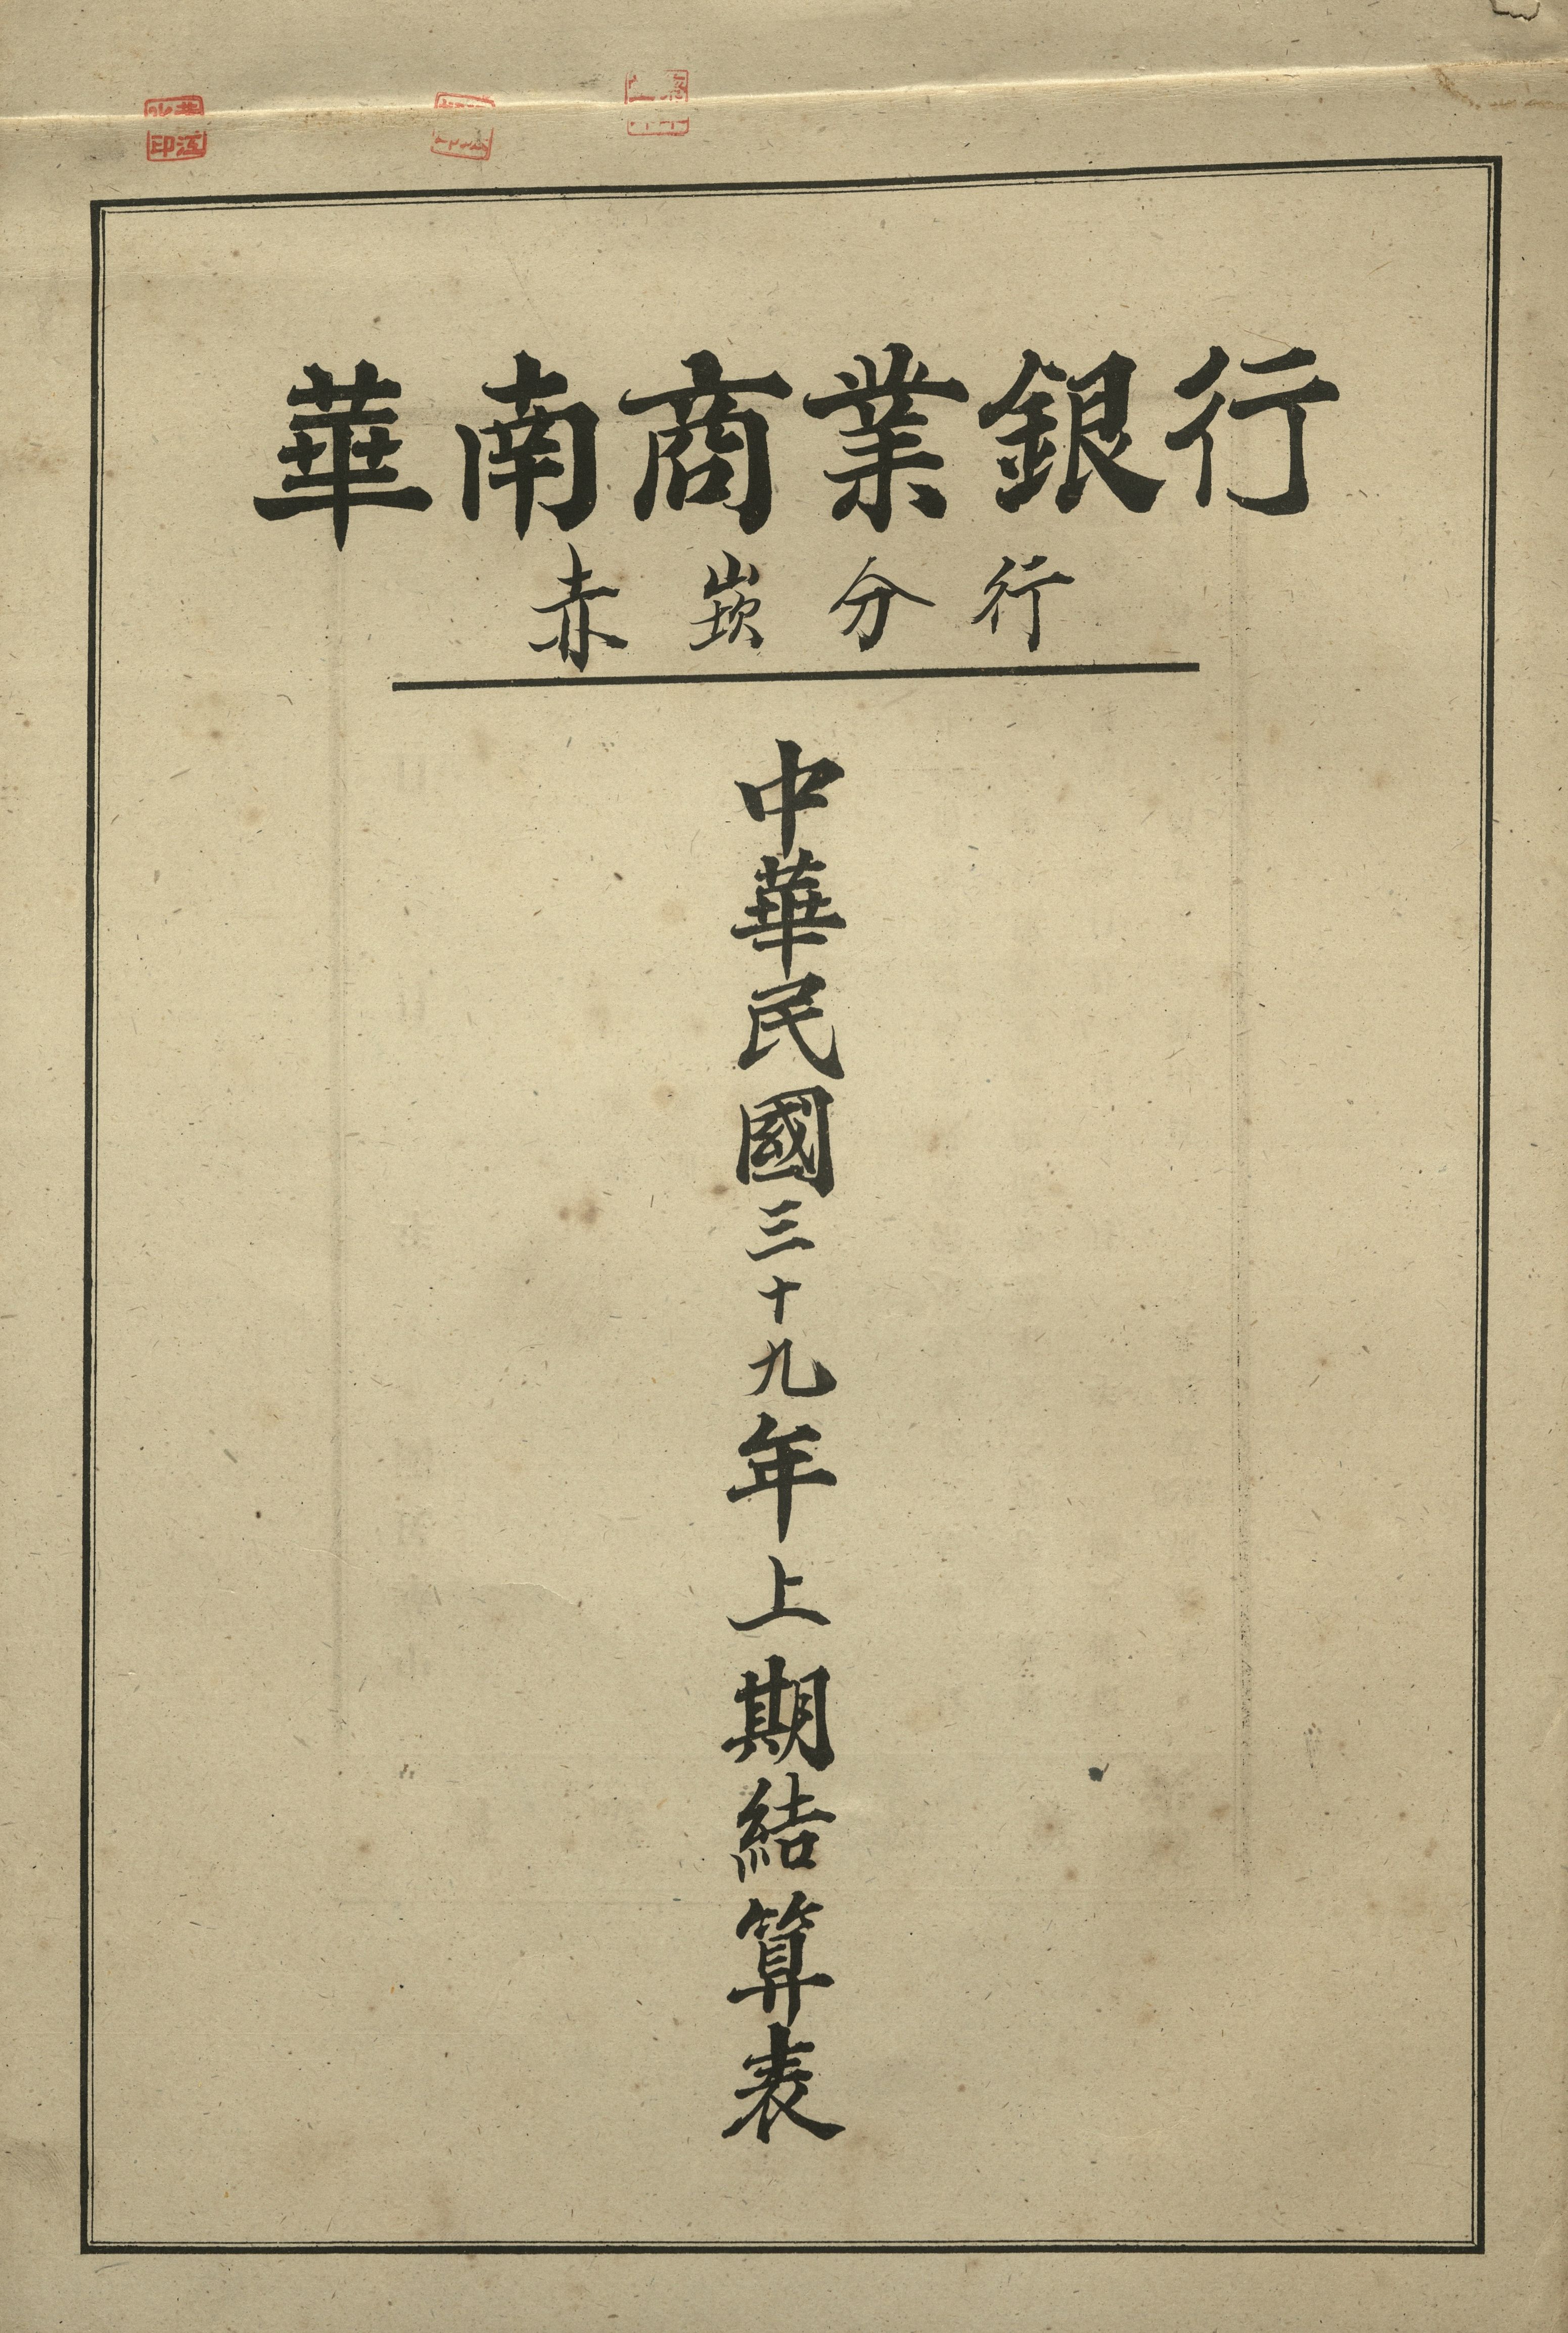 華南商業銀行
赤崁分行
中華民國三十九年上期結算表